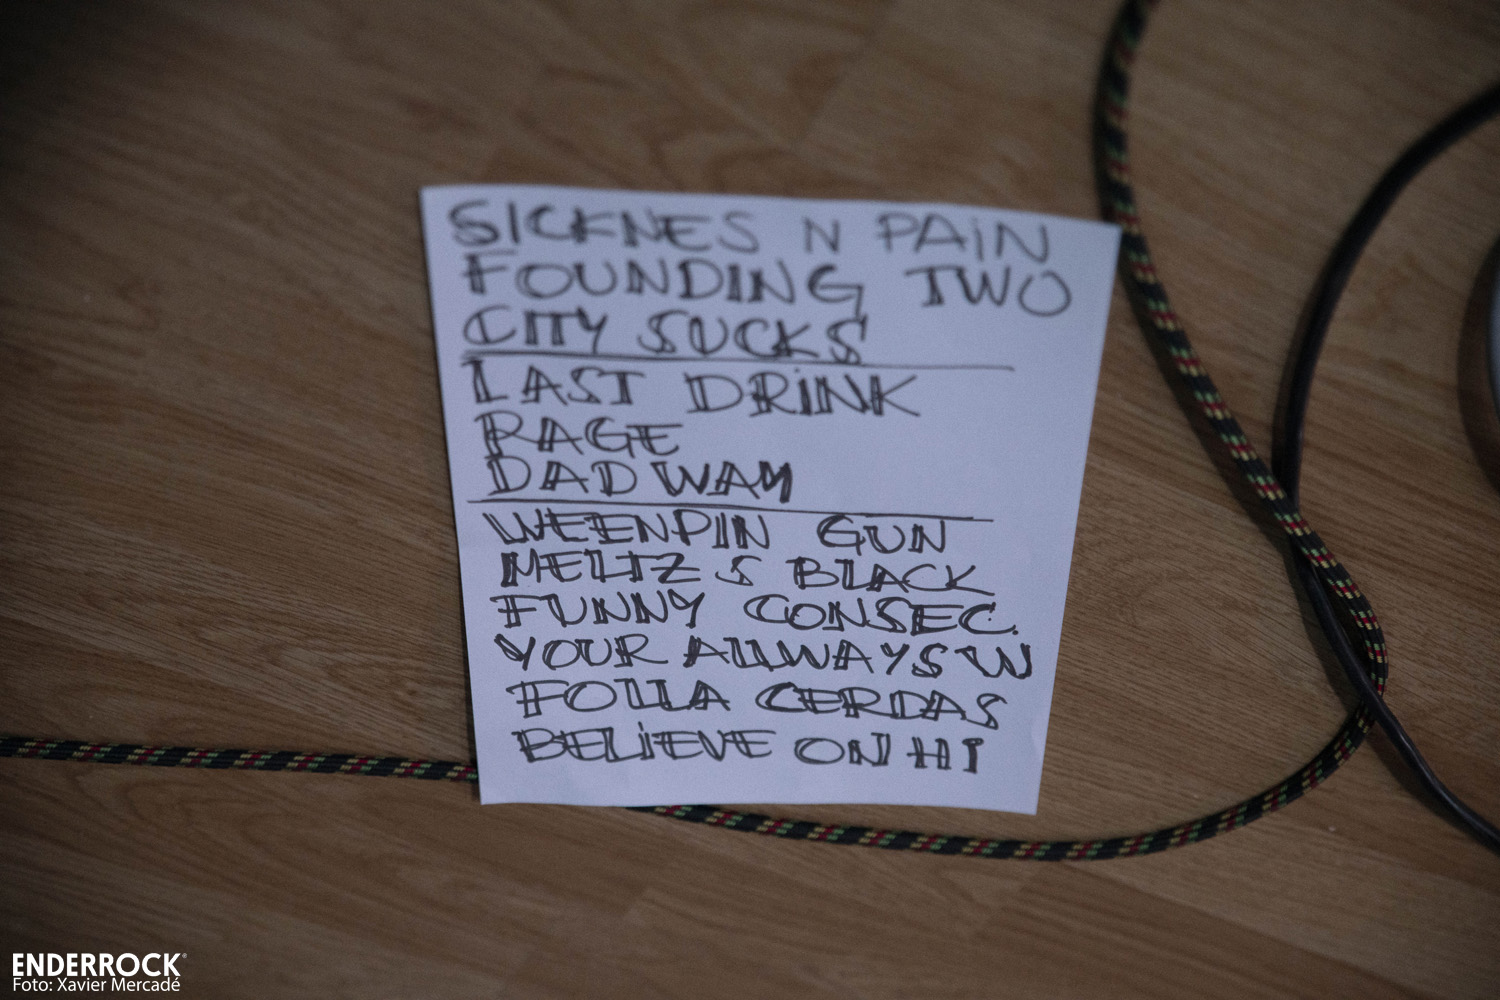 SICKNES N PAiN
FOUNDING TWO
CITY SUCKS
LAST DRiNK
RAGE
DAD WAY
WEENPIN GUN
MELTZ S BLACK
FUNNY CONSEC.
YOUR ALLWAYS W
FOLLA CERDAS
BELiEVE ON HI
ENDERROCK®
Foto: Xavier Mercadé